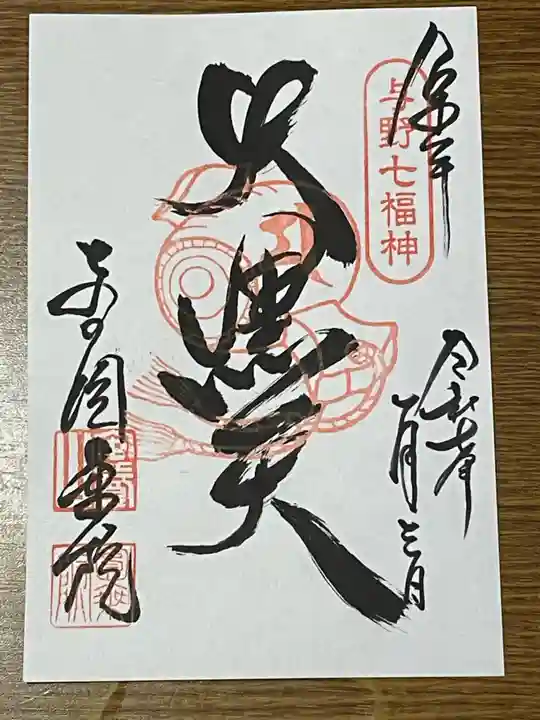 奉拝
与野七福神
令和七年
一月三日
大黒天
圓乗院